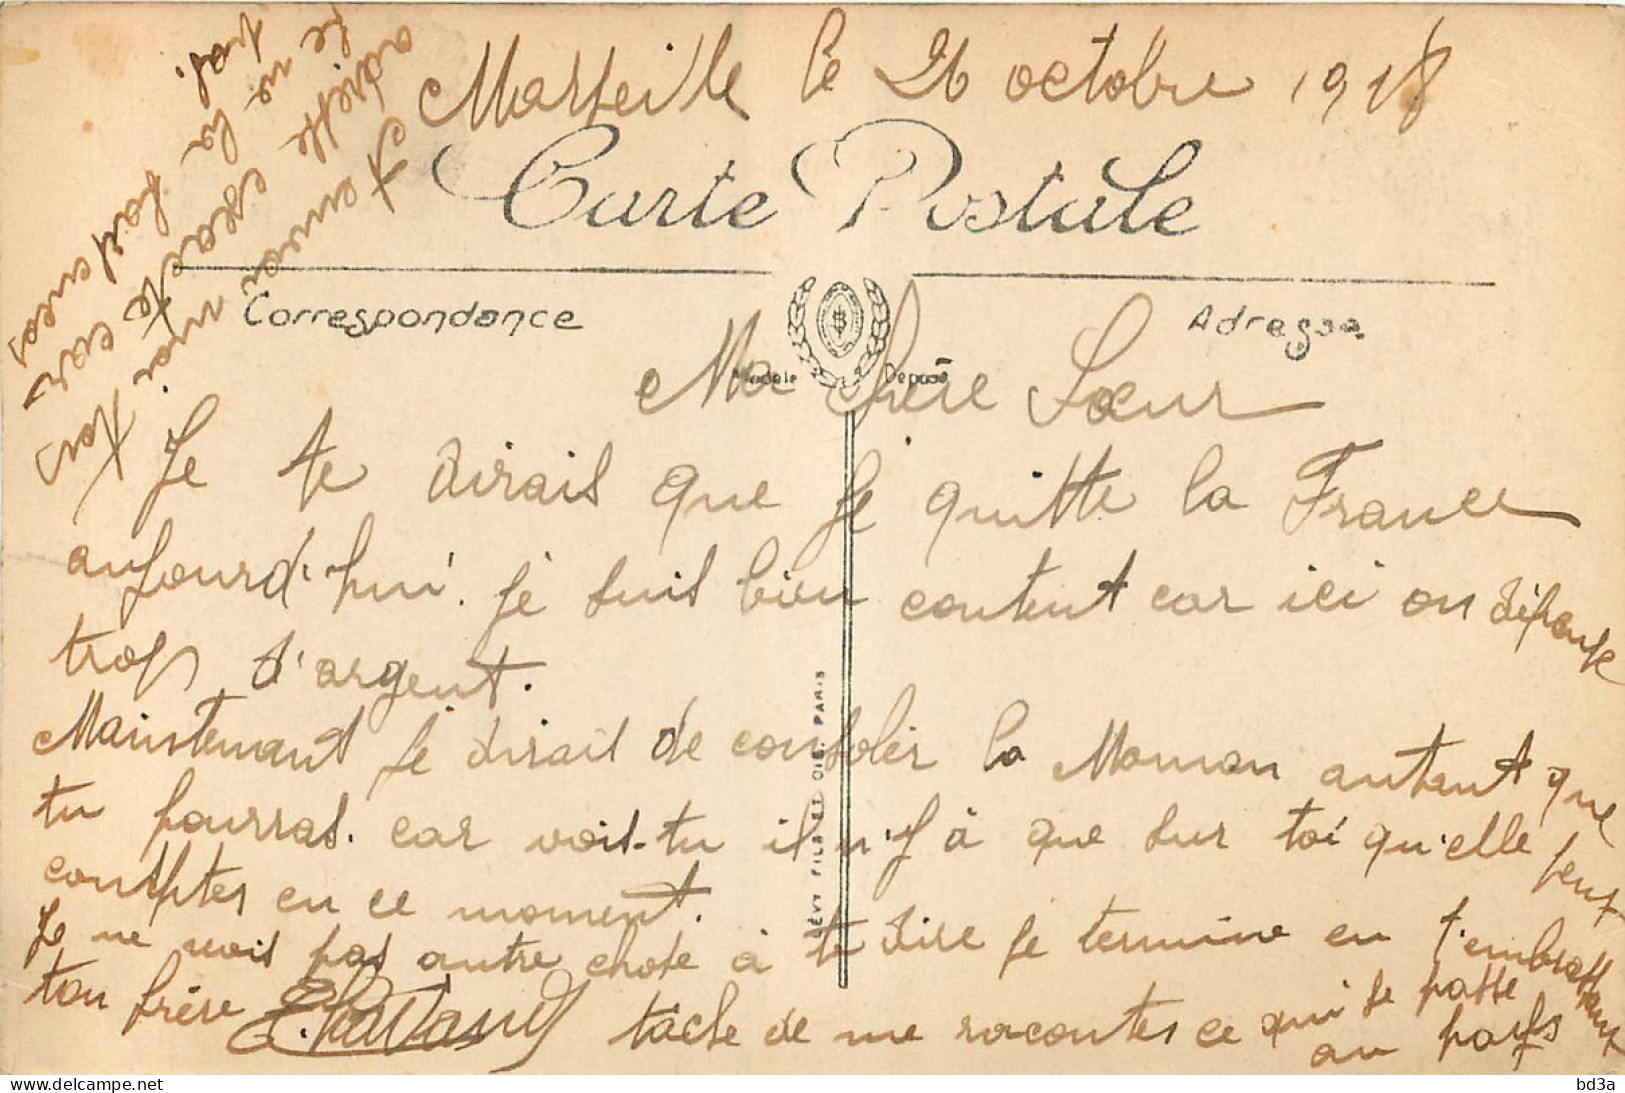 Marseille le 26 octobre 1918
Carte Postale
Correspondance
Adresse
Modèle Déposé
Ma Chère Sœur
Je te dirais que je quitte la France
aujourd'hui. je suis bien content car ici on dépense
trop d'argent.
Maintenant je dirais de consoler la Maman autant que
tu pourras. car vois-tu il n'y à que sur toi qu'elle peux
comptes en ce moment.
Je ne vois pas autre chose à te dire je termine en t'embrassant
ton frère
tâche de me racontes ce qui se passe
au pays
LÉVY FILS ET CIE. PARIS
A envoi moi ton
adresse exacte car
je ne la sais encore
pas.
bd3a